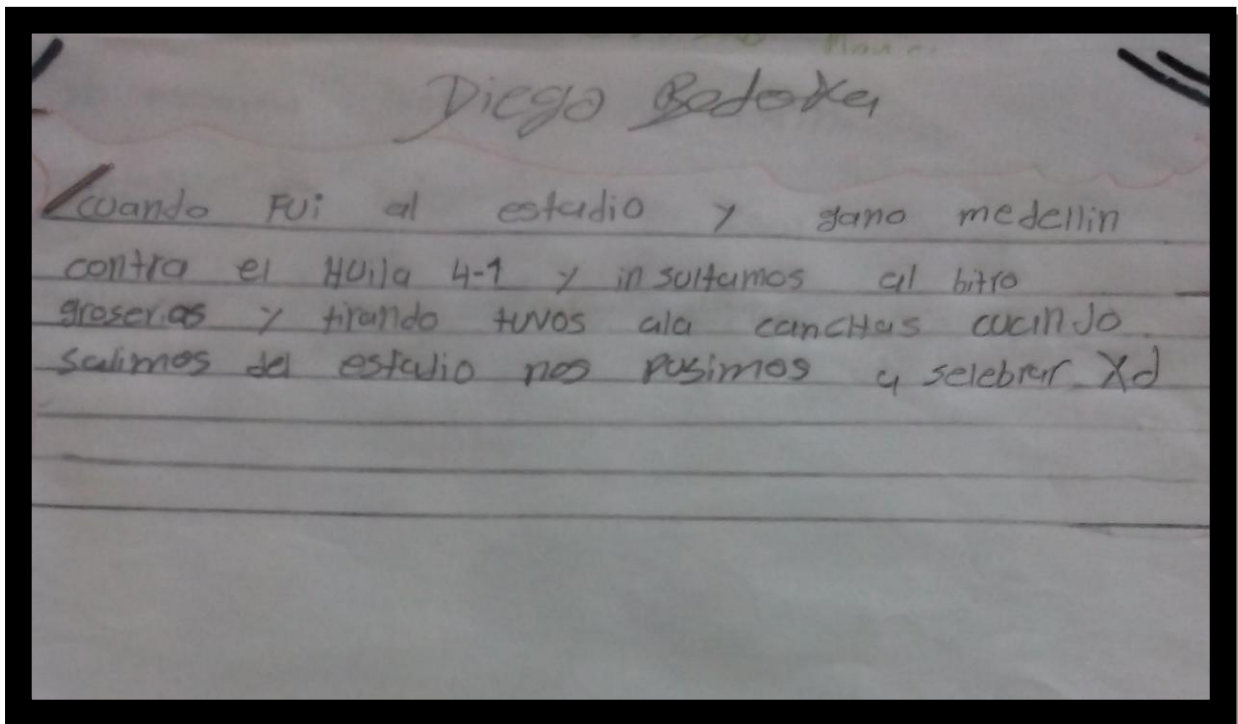 Diego Bedoya
cuando FUi al estadio y gano medellin
contra el HUila 4-1 y insultamos al bitro
groserias y tirando tuvos ala cancHas cuando
salimos del estadio nos pusimos a selebrar Xd